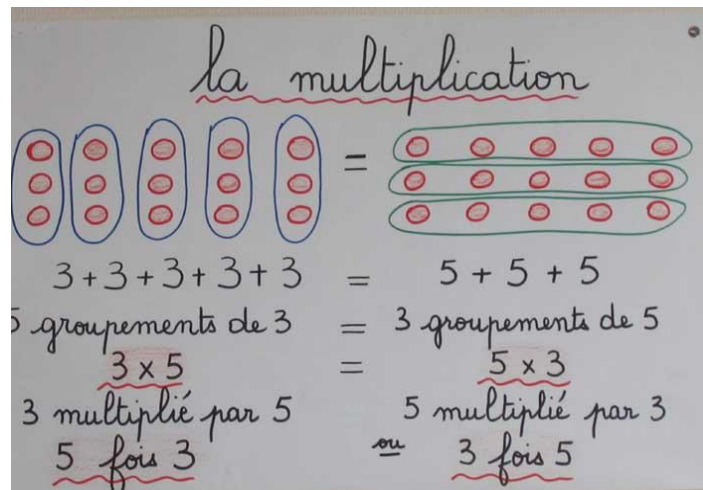 la multiplication
=
3 + 3 + 3 + 3 + 3 = 5 + 5 + 5
5 groupements de 3 = 3 groupements de 5
3 x 5 = 5 x 3
3 multiplié par 5 5 multiplié par 3
5 fois 3 ou 3 fois 5